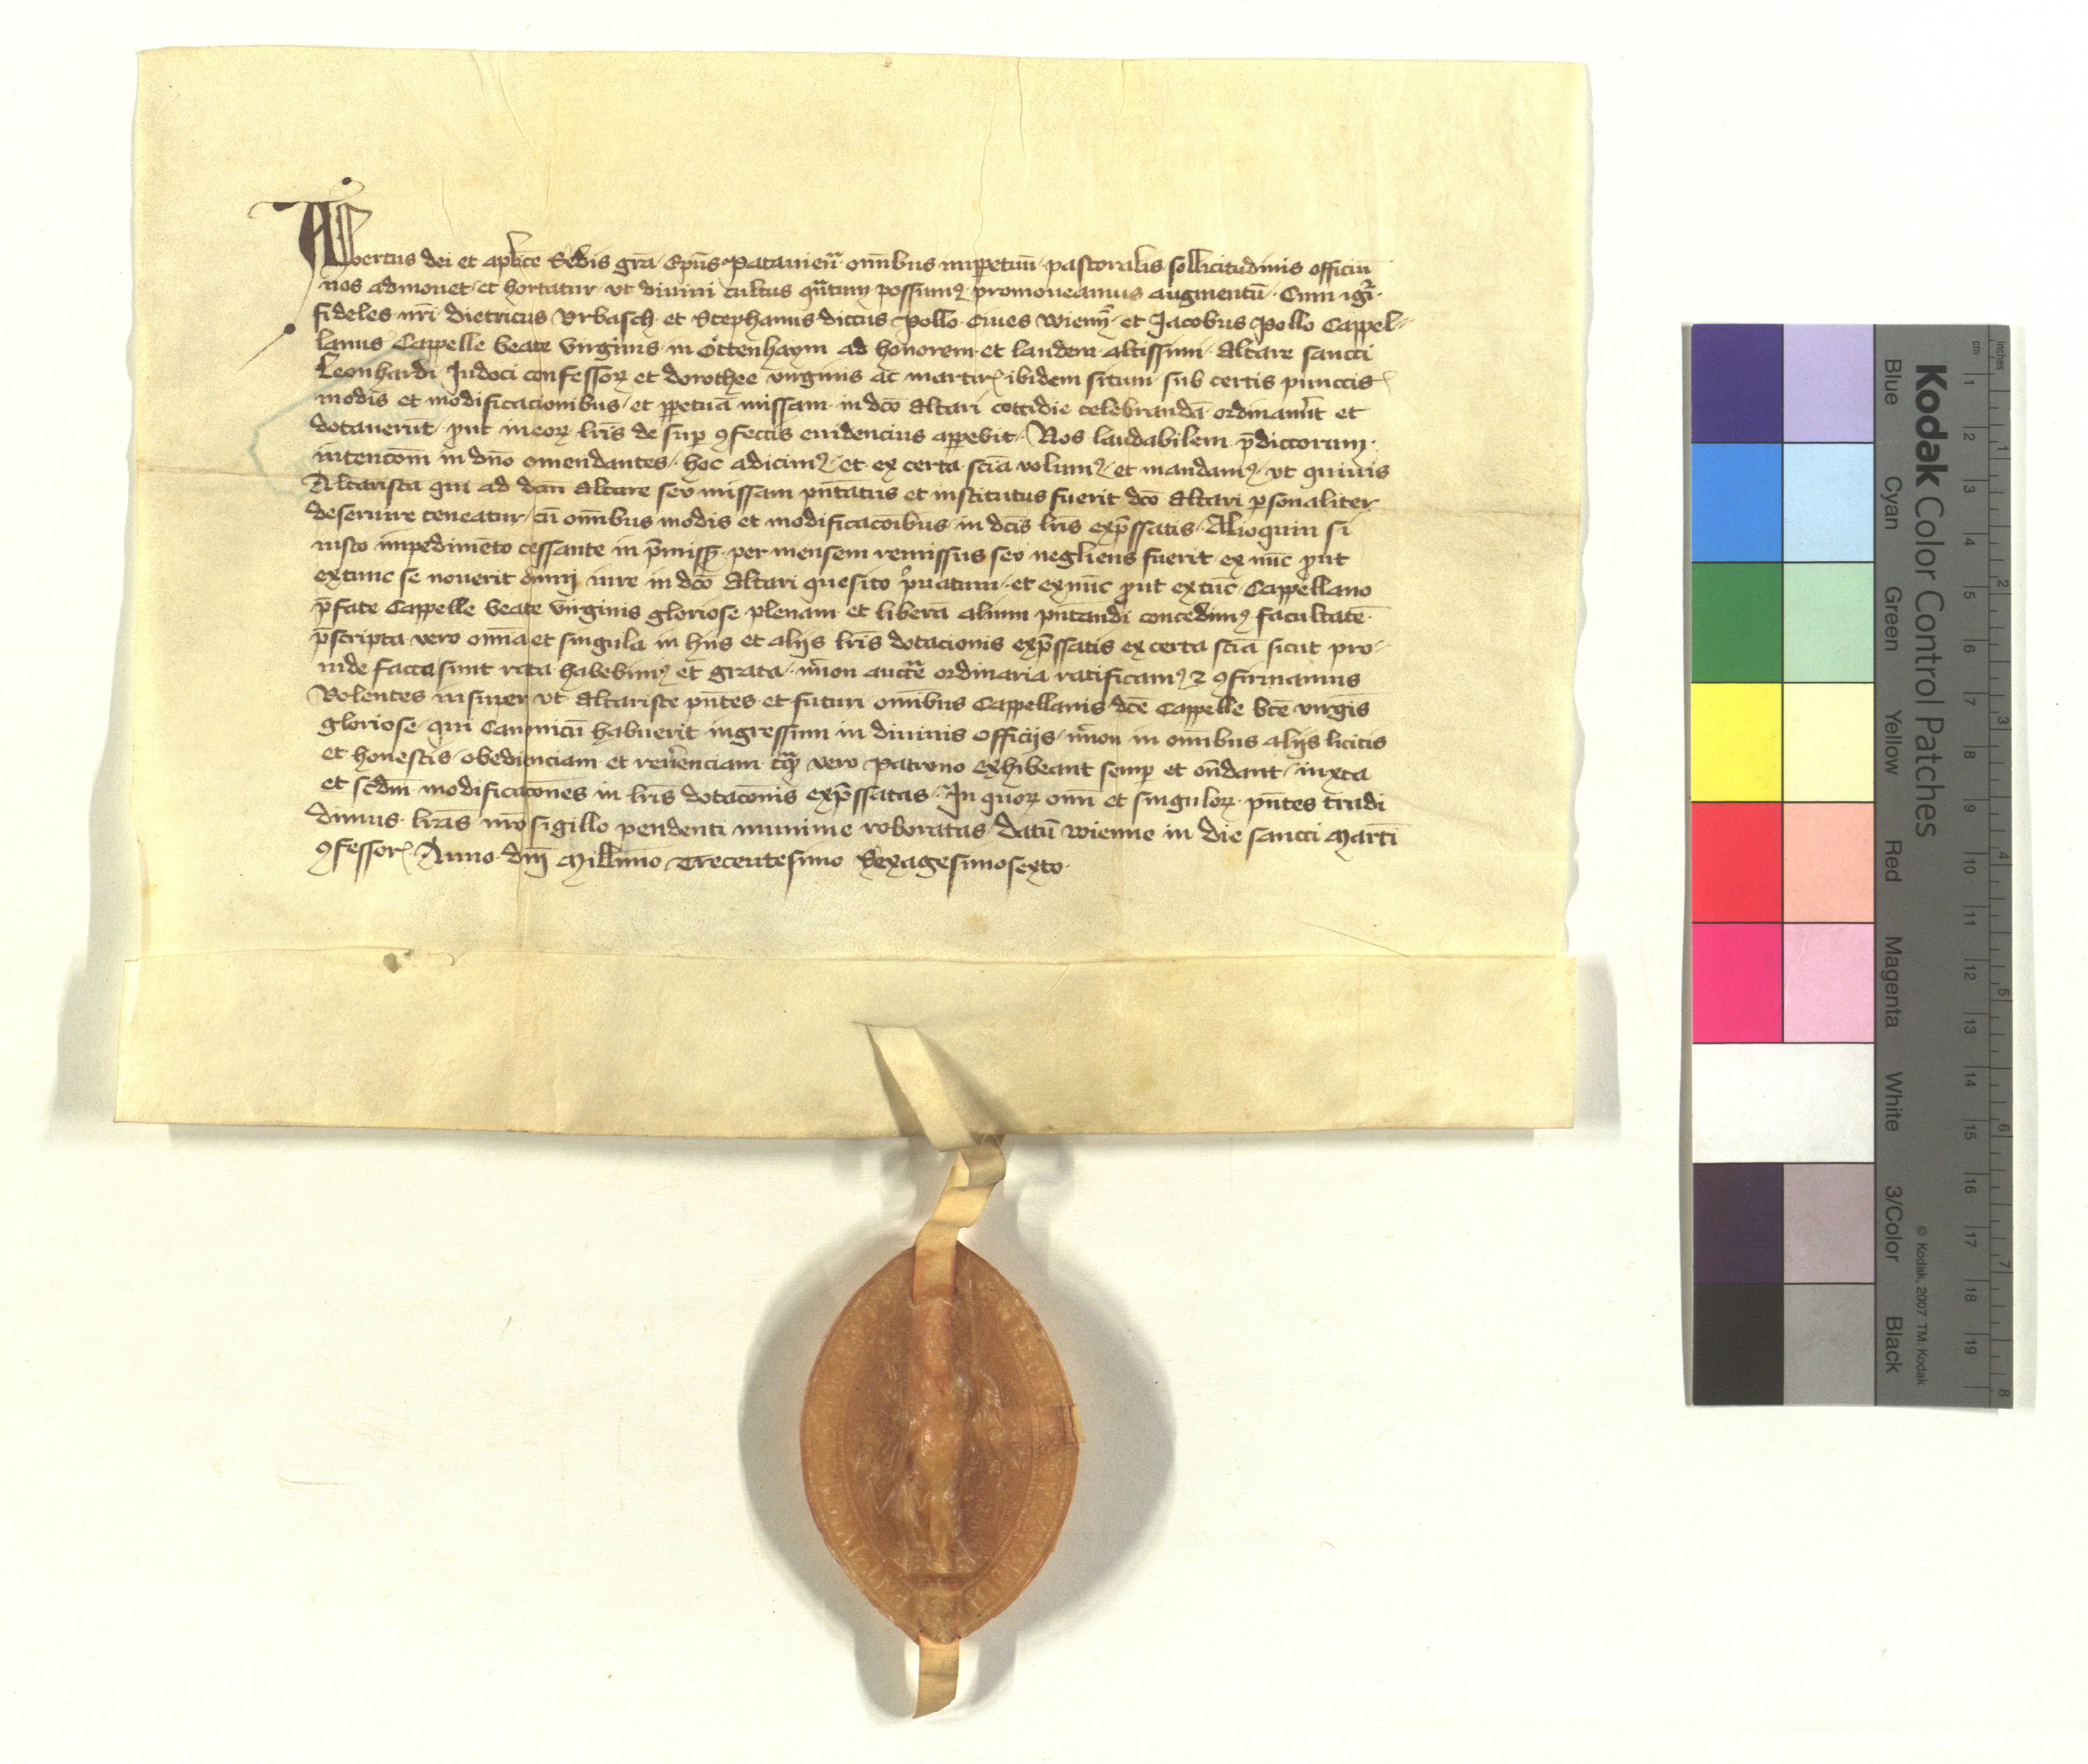 Albertus dei et aplice Sedis gra Epus Patauien omibus imppetuu pastoralis sollicitudinis officiu
nos admonet et hortatur vt diuini cultus qntum possum9 promoueamus augmentu Cum igr
fideles nri Dietricus Vrbasch et Stephanus dictus Pollo Ciues Wienn et Jacobus Pollo Cappel-
lanus Cappelle beate virginis in Ottenhaym ad honorem et laudem altissimi Altare sancti
Leonhardi Judoci confessor et dorothee virginis ac martir ibidem situm sub certis punctis
modis et modificacionibus et ppetua missam in dco Altari cottidie celebranda ordinauerit et
dotauerut put in eor lris de sup 9fectis euidencius appebit Nos laudabilem pdictorum
intencom in dno omendantes hoc adicim9 et ex certa scia volum9 et mandam9 vt quiuis
Altarista qui ad dcm Altare seu missam pntatus et institutus fuerit dco Altari psonaliter
deseruire teneatur cu omibus modis et modificacoibus in dcis lris expssatis Alioquin si
iusto impedimeto cessante in pmiss per mensem remissus seu negliens fuerit ex nuc put
extunc se nouerit omni iure in dco Altari quesito priuatum et exnuc put extuc Cappellano
pfate Cappelle beate virginis gloriose plenam et libera alium pntandi concedim9 facultate
pscripta vero omia et singula in hiis et aliis lris dotacionis expssatis ex certa scia sicut pro-
uide facta sunt rata habebim9 et grata nicon auctte ordinaria ratificam9 et 9firmamus
Volentes insuper vt Altariste pntes et futuri omibus Cappellanis dce Cappelle bte virgis
gloriose qui Canonicu habuerit ingressum in diuinis officijs nicon in omibus aliis licitis
et honestis obedienciam et reuenciam tqm vero patrono exhibeant semp et ondant iuxta
et scdm modificacones in lris dotaconis expssatas In quor omi et singulor pntes tradi
dimus lras nro sigillo pendenti munime roboratas Datu Wienne in die sancti Marti
9fessor Anno dni Millimo Trecentesimo Sexagesimosexto
Kodak Color Control Patches
Blue Cyan Green Yellow Red Magenta White 3/Color Black
© Kodak, 2007 TM: Kodak
cm 1 2 3 4 5 6 7 8 9 10 11 12 13 14 15 16 17 18 19
inches 1 2 3 4 5 6 7 8